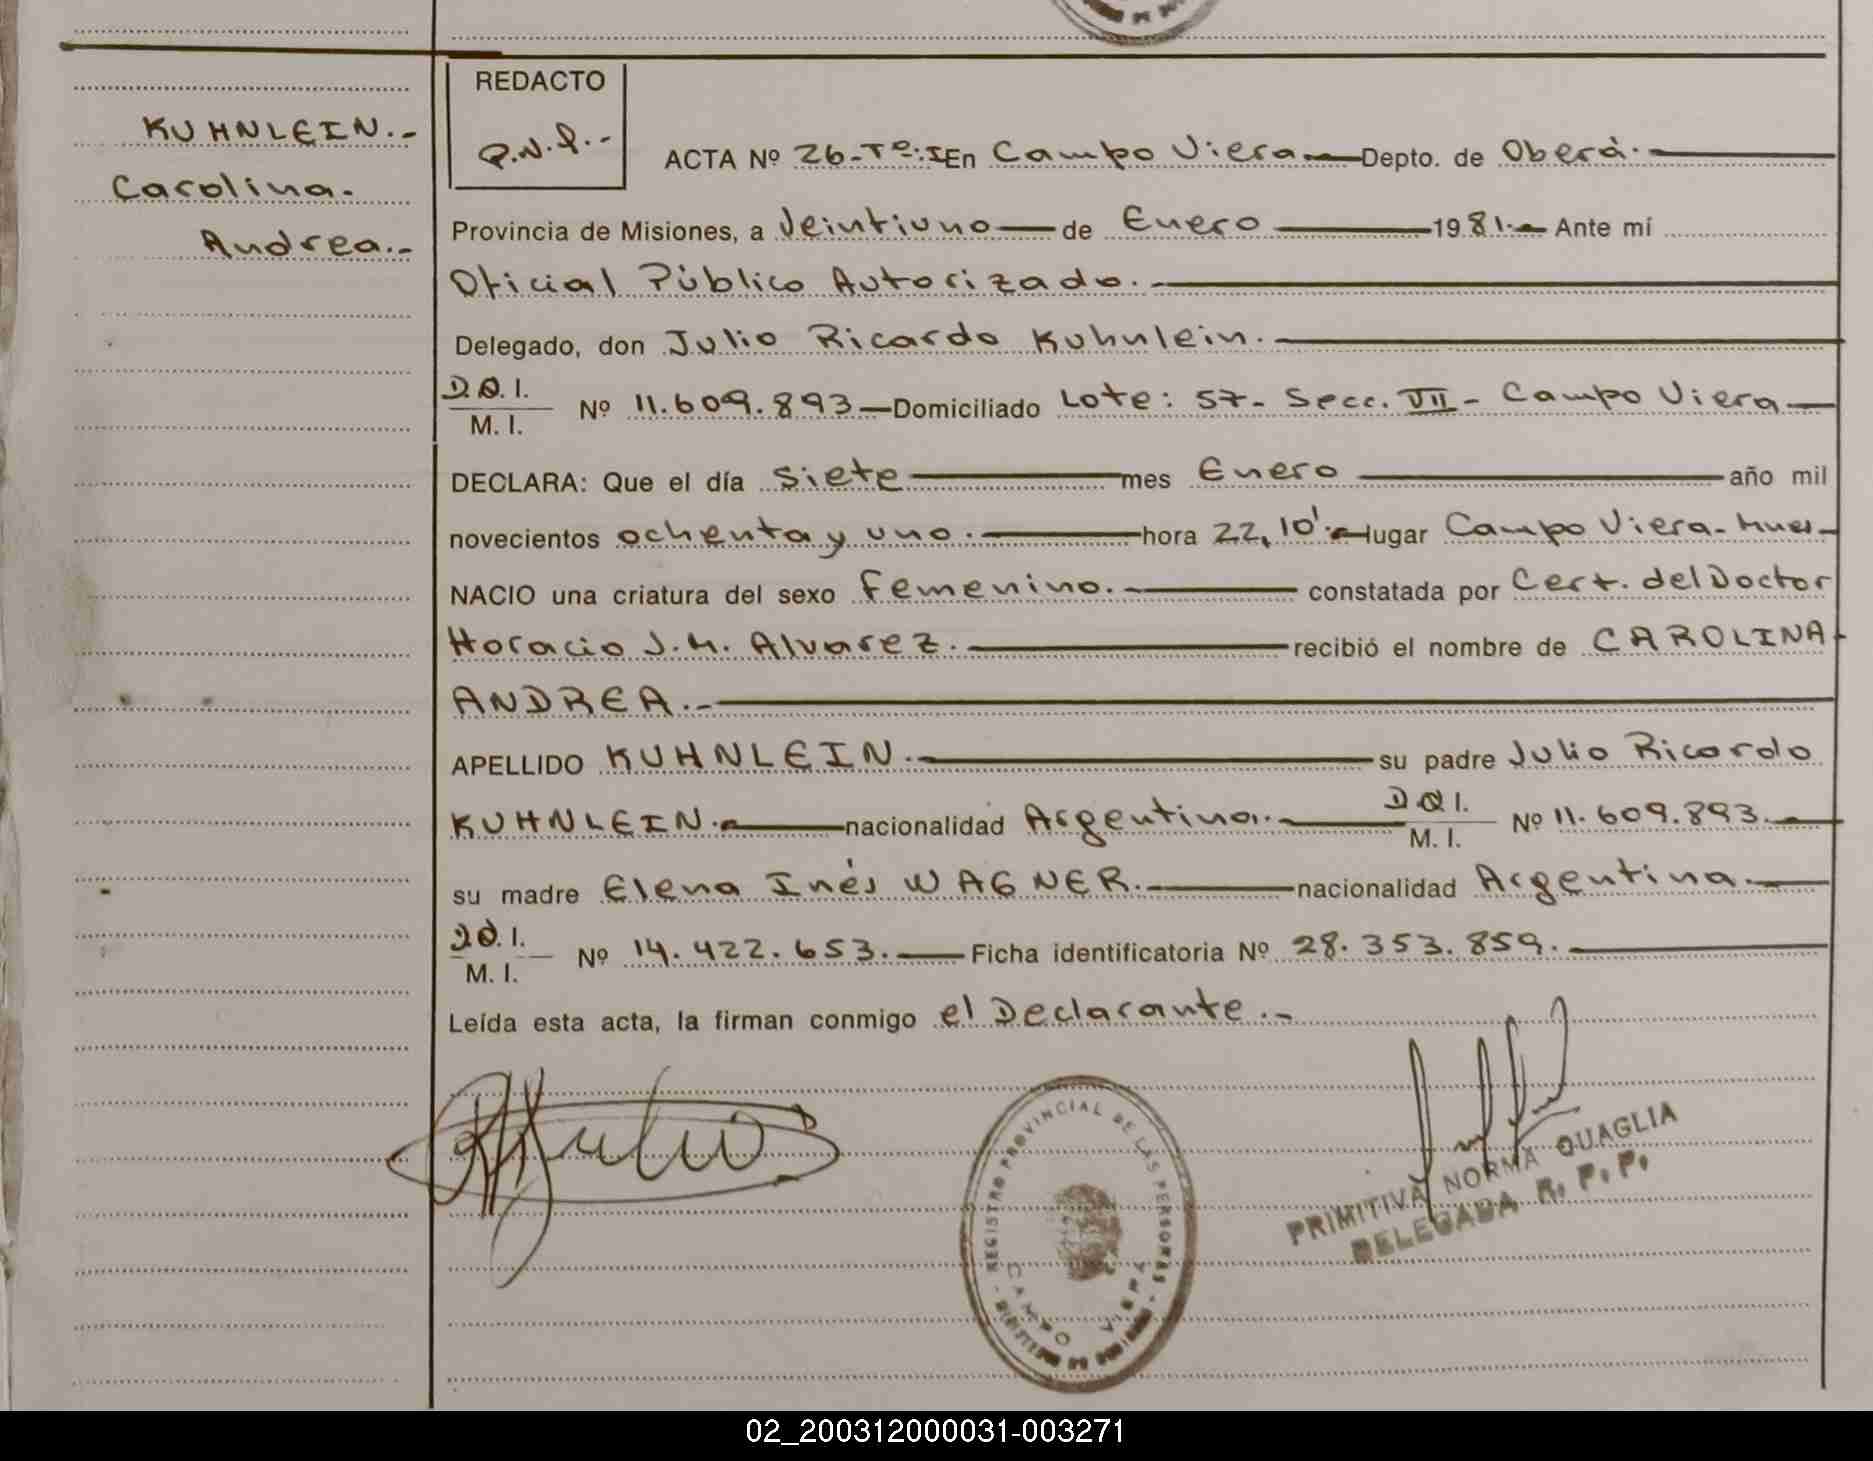 KUHNLEIN.-
Carolina.
Andrea.-
REDACTO
ACTA Nº 26-Tº:I En Campo Viera Depto. de Oberá.
Provincia de Misiones, a Veintiuno de Enero 1981.- Ante mí
Oficial Público Autorizado.
Delegado, don Julio Ricardo Kuhnlein.
D.N.I.
M. I. Nº 11.609.893 Domiciliado Lote: 57- Secc. VII - Campo Viera
DECLARA: Que el día siete mes Enero año mil
novecientos ochenta y uno. hora 22,10'.- lugar Campo Viera-
NACIO una criatura del sexo femenino. constatada por Cert. del Doctor
Horacio J.M. Alvarez. recibió el nombre de CAROLINA
ANDREA.-
APELLIDO KUHNLEIN. su padre Julio Ricardo
KUHNLEIN.- nacionalidad Argentina. D.N.I.
M. I. Nº 11.609.893.
su madre Elena Inés WAGNER. nacionalidad Argentina.
D.N.I.
M. I. Nº 14.422.653. Ficha identificatoria Nº 28.353.859.
Leída esta acta, la firman conmigo el Declarante.-
REGISTRO PROVINCIAL DE LAS PERSONAS
CAMPO VIERA
PRIMITIVA NORMA QUAGLIA
DELEGADA R. P. P.
02_200312000031-003271